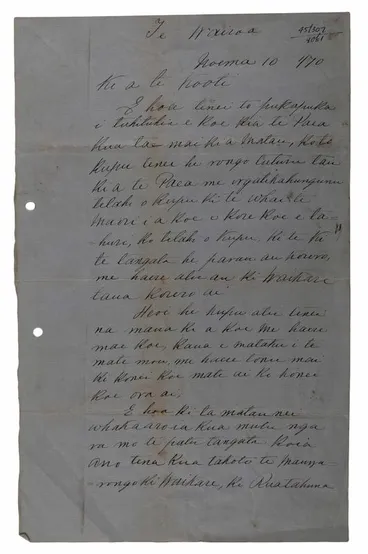 Te Wairoa
Noema 10 1870
Ki a te Kooti
E hoa tenei to pukapuka
i tuhituhia e Koe Kia te Paea
Kua tae mai Ki a Matau, Ko to
Kupu tenei he rongo tuturu tau
Ki a te Paea me
tetahi o Kupu Ki te whai te
Maori i a Koe e Kore Koe e ta
huri, Ko tetahi o Kupu. Ki te
te tangata he pai ou Korero,
me haere atu au Ki Waikare
taua Korero ai
Heoi he Kupu atu tenei
na maua Ki a Koe me haere
mai Koe, Kaua e mataku i te
mate mou, me haere tonu mai
Ki Konei Koe mate ai Ki Konei
Koe ora ai.
E hoa Ki ta matau nei
whakaaro Kua mutu nga
ra mo te patu tangata Koia
ano tena Kua takoto te Maunga
rongo Ki Waikare, Ki Ruatahuna